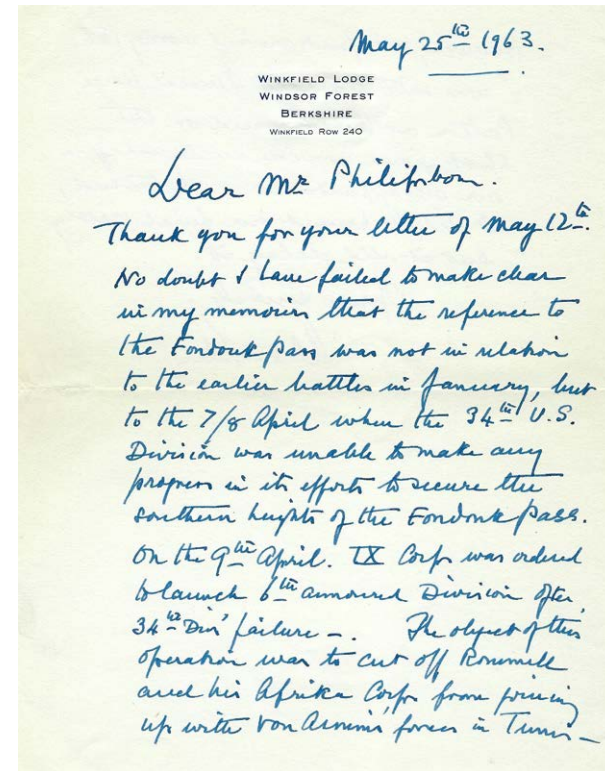 May 25th 1963.
WINKFIELD LODGE
WINDSOR FOREST
BERKSHIRE
WINKFIELD ROW 240
Dear Mr
Thank you for your letter of May 12th.
No doubt I have failed to make clear
in my memoirs that the reference to
the Fondouk Pass was not in relation
to the earlier battles in January, but
to the 7/8 April when the 34th U.S.
Division was unable to make any
progress in its efforts to secure the
southern heights of the Fondouk Pass.
On the 9th April. IX Corps was ordered
to launch 6th armoured Division after
34th Div' failure -. The object of this
operation was to cut off Rommell
and his Afrika Corps from joining
up with Von Arnim's forces in Tunis -